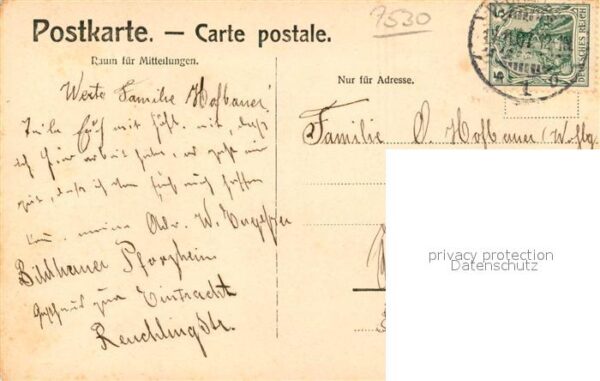 7530
Postkarte. — Carte postale.
DEUTSCHES REICH
Raum für Mitteilungen.
Nur für Adresse.
Werte Familie Hofbauer!
Teile Euch mit mit, daß
ich hier arbeit habe, es geht mir
gut, daß ich von auch hoffen
kan. meine Adr. W.
Bildhauer Pforzheim
Gasthaus zur Eintracht
Reuchlingstr.
Familie O. Hofbauer
privacy protection
Datenschutz